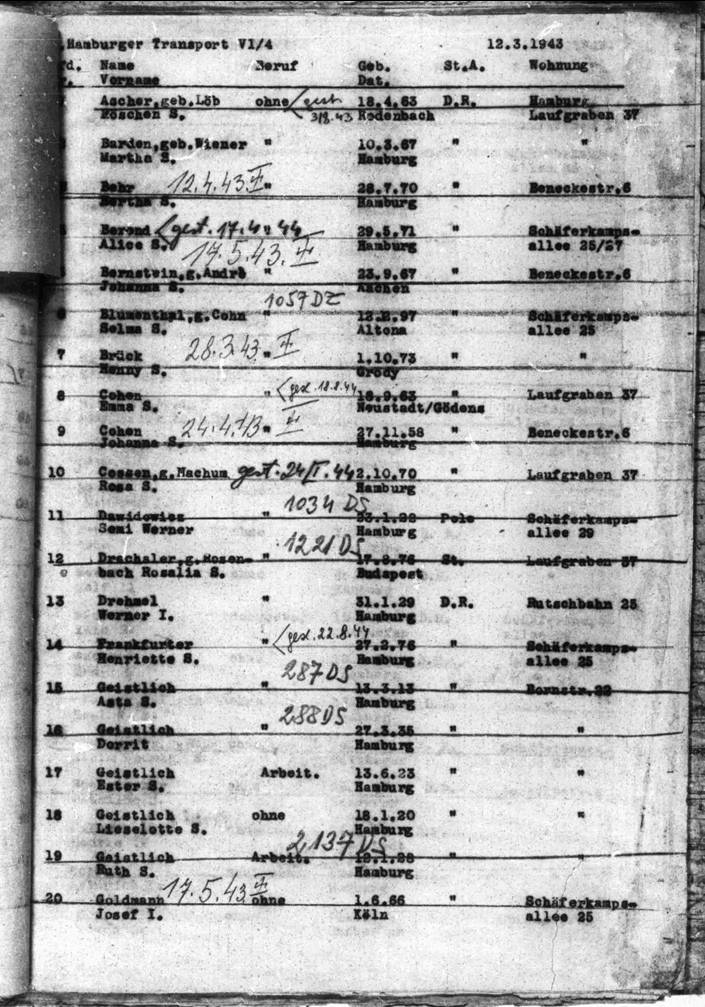 .Hamburger Transport VI/4 12.3.1943
fd. Name Beruf Geb. St.A. Wohnung
r. Vorname Dat.
Ascher,geb.Löb ohne gest 18.4.63 D.R. Hamburg
Röschen S. 3/8.43 Rodenbach Laufgraben 37
Barden,geb.Wiener " 10.3.67 " "
Martha S. Hamburg
Behr 12.4.43. " 28.7.70 " Beneckestr.6
Bertha S. Hamburg
Berend gest. 17.4. 44 29.5.71 " Schäferkamps-
Alice S. 17.5.43. Hamburg allee 25/27
Bernstein,g.André " 23.9.67 " Beneckestr.6
Johanna S. Aachen
1057 DZ
6 Blumenthal,g.Cohn " 97 " Schäferkamps-
Selma S. Altona allee 25
7 Brück 28.3.43 " 1.10.73 " "
Henny S. Grody
8 Cohen " gest. 18.8.44 18.9.63 " Laufgraben 37
Emma S. Neustadt/Gödens
9 Cohen 24.4.43 " 27.11.58 " Beneckestr.6
Johanna S. Hamburg
10 Cossen,g.Nachum gest. 24/I. 44 2.10.70 " Laufgraben 37
Rosa S. Hamburg
1034 DS
11 Dawidowicz " Pole Schäferkamps-
Semi Werner Hamburg allee 29
1221 DS
12 Drachsler,g.Rosen- " 76 St. Laufgraben 37
bach Rosalia S. Budapest
13 Drehmel " 31.1.29 D.R. Rutschbahn 25
Werner I. Hamburg
14 Frankfurter " gest. 22.8.44 27.2.76 " Schäferkamps-
Henriette S. Hamburg allee 25
287 DS
15 Geistlich " 13.3.13 " Bornstr.22
Asta S. Hamburg
288 DS
16 Geistlich " 27.3.35 " "
Dorrit Hamburg
17 Geistlich Arbeit. 13.6.23 " "
Ester S. Hamburg
18 Geistlich ohne 18.1.20 " "
Lieselotte S. Hamburg
2137 DS
19 Geistlich Arbeit. " "
Ruth S. Hamburg
20 Goldmann 17.5.43. ohne 1.6.66 Schäferkamps-
Josef I. Köln allee 25